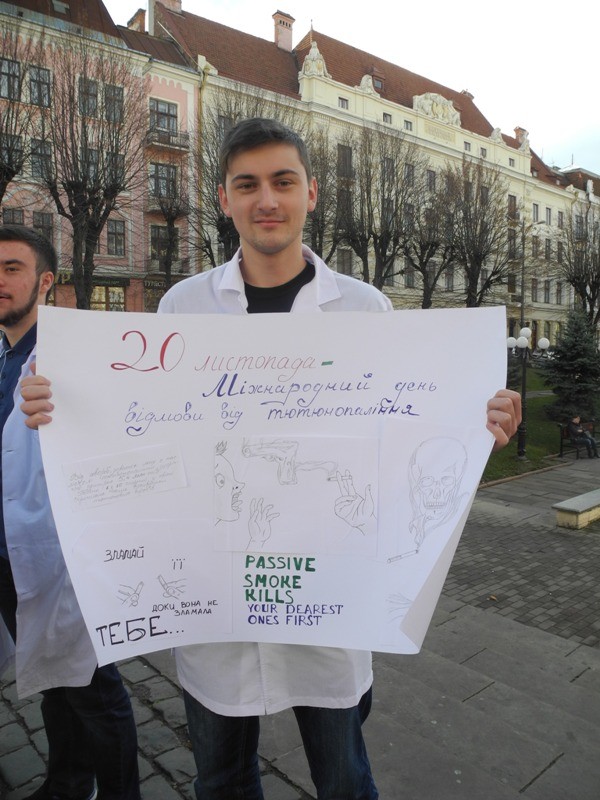 20 листопада-
Міжнародний день
відмови від тютюнопаління
ЗЛАМАЙ
ЇЇ
ДОКИ ВОНА НЕ
ЗЛАМАЛА
ТЕБЕ...
PASSIVE
SMOKE
KILLS
YOUR DEAREST
ONES FIRST